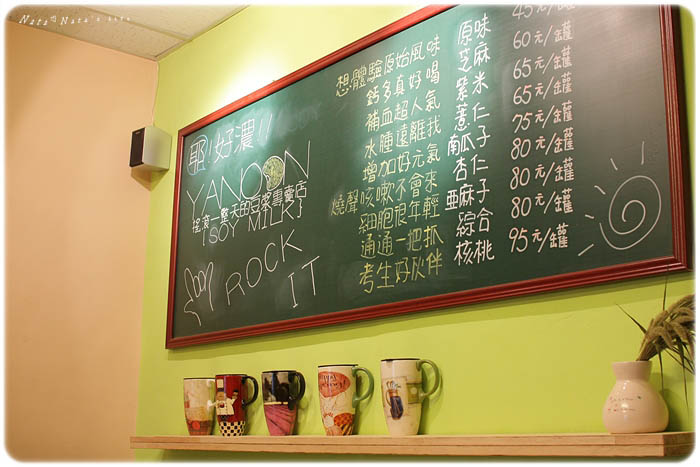 Nata的 Nata's Life
耶!好濃!!
YANOON
搖滾一整天的豆漿專賣店
[SOY MILK]
ROCK
IT
想體驗原始風味 原味 45元/罐
鈣多真好喝 芝麻 60元/罐
補血超人氣 紫米 65元/罐
水腫遠離我 薏仁 65元/罐
增加好元氣 南瓜子 75元/罐
咳嗽不會來 杏仁 80元/罐
燒聲 亞麻子 80元/罐
細胞很年輕
通通一把抓 綜合 80元/罐
考生好伙伴 核桃 95元/罐